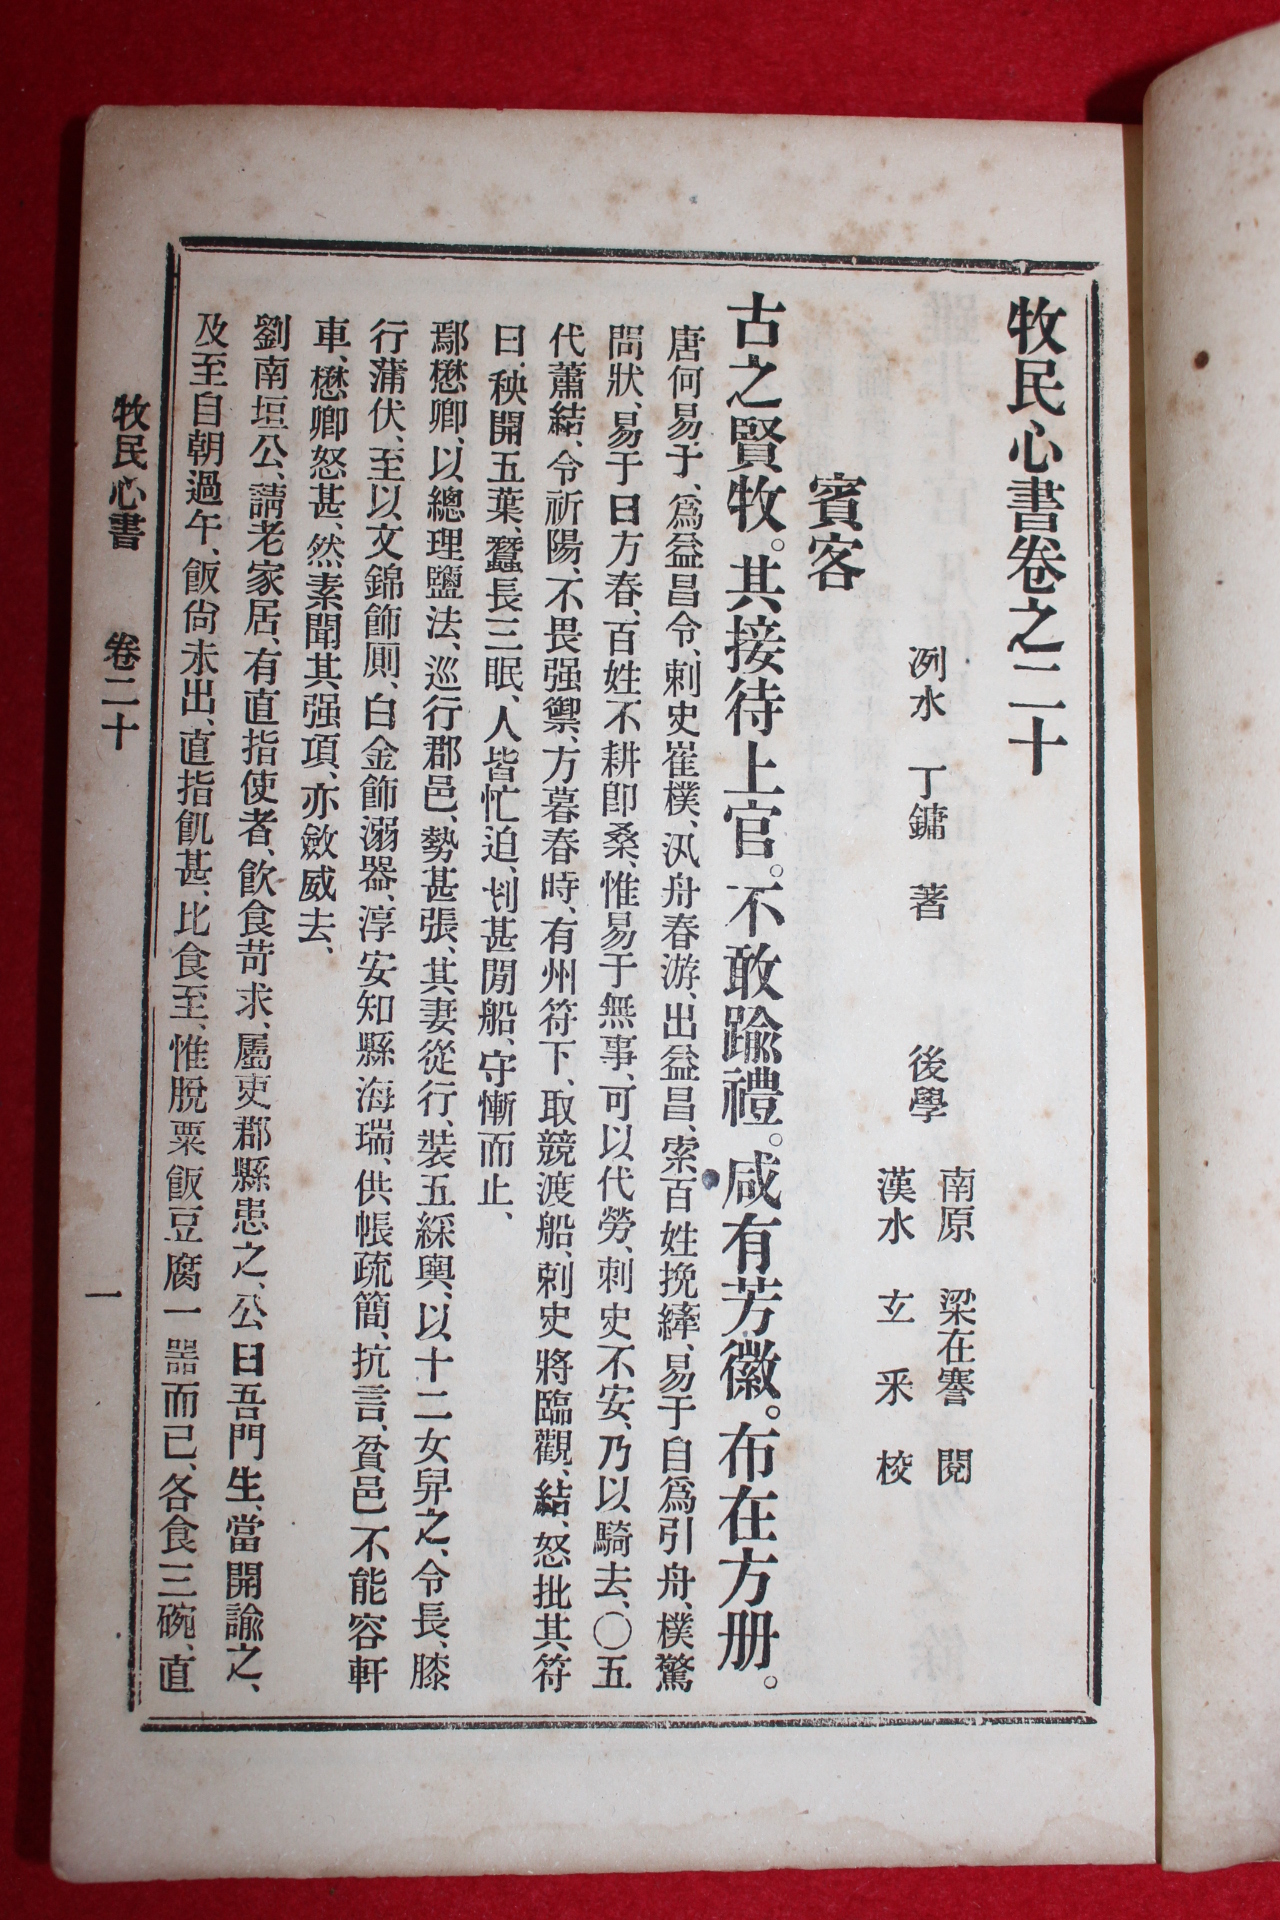 牧民心書卷之二十
洌水 丁鏞 著 後學 南原 梁在謇 閱
漢水 玄采 校
賓客
古之賢牧。其接待上官。不敢踰禮。咸有芳徽。布在方册。
唐何易于、爲益昌令、刺史崔樸、汎舟春游、出益昌、索百姓挽繂、易于自爲引舟、樸驚
問狀、易于曰方春、百姓不耕卽桑、惟易于無事、可以代勞、刺史不安、乃以騎去、〇五
代蕭結、令祈陽、不畏强禦、方暮春時、有州符下、取競渡船、刺史將臨觀、結、怒批其符
曰、秧開五葉、蠶長三眠、人皆忙迫、刬甚閒船、守慚而止、
鄢懋卿、以總理鹽法、巡行郡邑、勢甚張、其妻從行、裝五綵輿、以十二女舁之、令長、膝
行蒲伏、至以文錦飾厠、白金飾溺器、淳安知縣海瑞、供帳疏簡、抗言、貧邑不能容軒
車、懋卿怒甚、然素聞其强項、亦斂威去、
劉南垣公、請老家居、有直指使者、飮食苛求、屬吏郡縣患之、公曰吾門生、當開諭之、
及至自朝過午、飯尙未出、直指飢甚、比食至、惟脫粟飯豆腐一器而已、各食三碗、直
牧民心書 卷二十 一